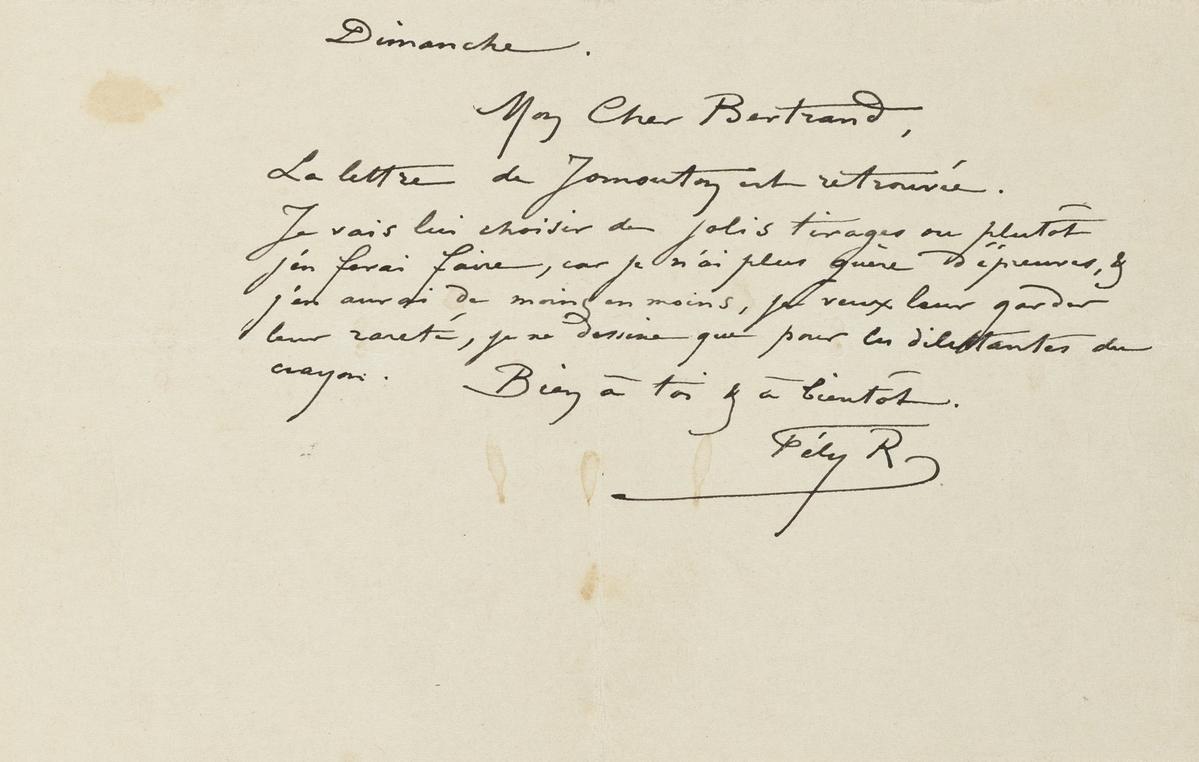 Dimanche.
Mon Cher Bertrand,
La lettre de Jomouton est retrouvée.
Je vais lui choisir de jolis tirages ou plutôt
j'en ferai faire, car je n'ai plus guère d'épreuves, &
j'en aurai de moins en moins, je veux leur garder
leur rareté, je ne dessine que pour les dilettantes du
crayon. Bien à toi & à bientôt.
Fély R